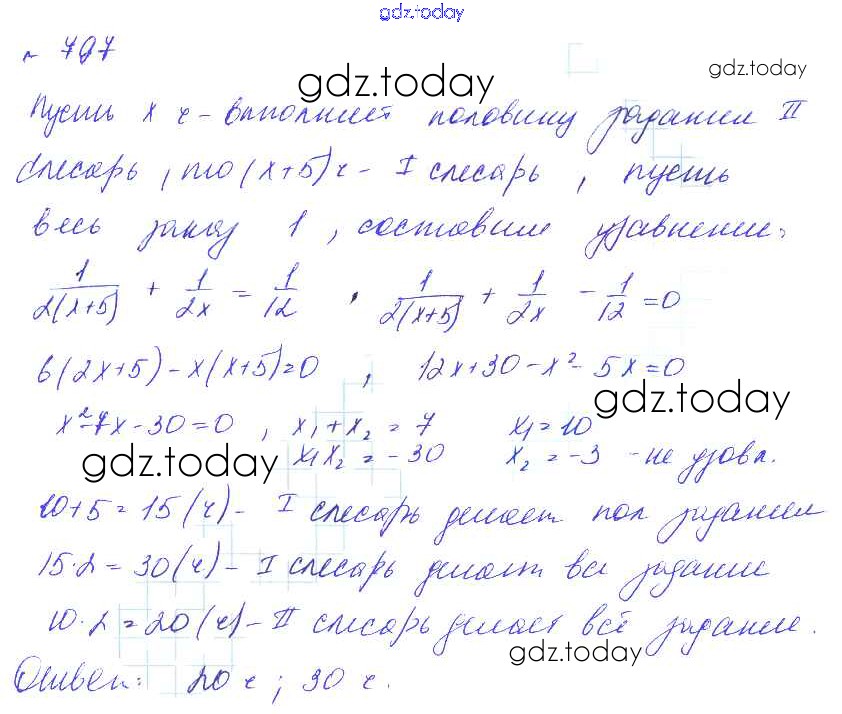 gdz.today
№ 797
gdz.today
gdz.today
Пусть x ч - выполнит половину задания II
слесарь, то (x+5) ч - I слесарь, пусть
весь заказ 1, составим уравнение:
1/(2(x+5)) + 1/(2x) = 1/12 , 1/(2(x+5)) + 1/(2x) - 1/12 = 0
6(2x+5) - x(x+5) = 0 , 12x+30-x²-5x=0
gdz.today
x²-7x-30=0 , x₁+x₂=7 x₁=10
gdz.today
x₁x₂=-30 x₂=-3 - не удовл.
10+5=15(ч) - I слесарь делает пол задания
15·2=30(ч) - I слесарь делает все задание
10·2=20(ч) - II слесарь делает всё задание.
gdz.today
Ответ: 20 ч; 30 ч.